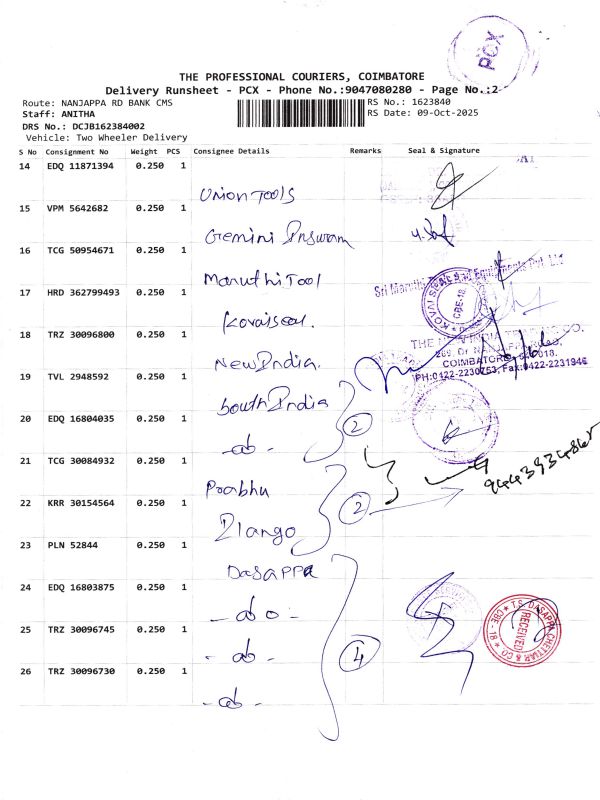 PCX
THE PROFESSIONAL COURIERS, COIMBATORE
Delivery Runsheet - PCX - Phone No.:9047080280 - Page No.:2
Route: NANJAPPA RD BANK CMS
RS No.: 1623840
Staff: ANITHA
RS Date: 09-Oct-2025
DRS No.: DCJB162384002
Vehicle: Two Wheeler Delivery
S No Consignment No Weight PCS Consignee Details Remarks Seal & Signature
14 EDQ 11871394 0.250 1
Union Tools
15 VPM 5642682 0.250 1
Gemini
16 TCG 50954671 0.250 1
Maruthi Tool
Sri Maruthi
17 HRD 362799493 0.250 1
Kovaiseal.
CBE-18.
18 TRZ 30096800 0.250 1
New India.
COIMBATORE
PH:0422-2230753, Fax:0422-2231946
19 TVL 2948592 0.250 1
South India
20 EDQ 16804035 0.250 1
-do-
2
21 TCG 30084932 0.250 1
Prabhu
9443934867
22 KRR 30154564 0.250 1
2
Elango
23 PLN 52844 0.250 1
Dasappa
24 EDQ 16803875 0.250 1
-do-
T.S. DASAPPA CHETTIAR & CO
RECEIVED
CBE - 18
25 TRZ 30096745 0.250 1
-do-
4
26 TRZ 30096730 0.250 1
-do-